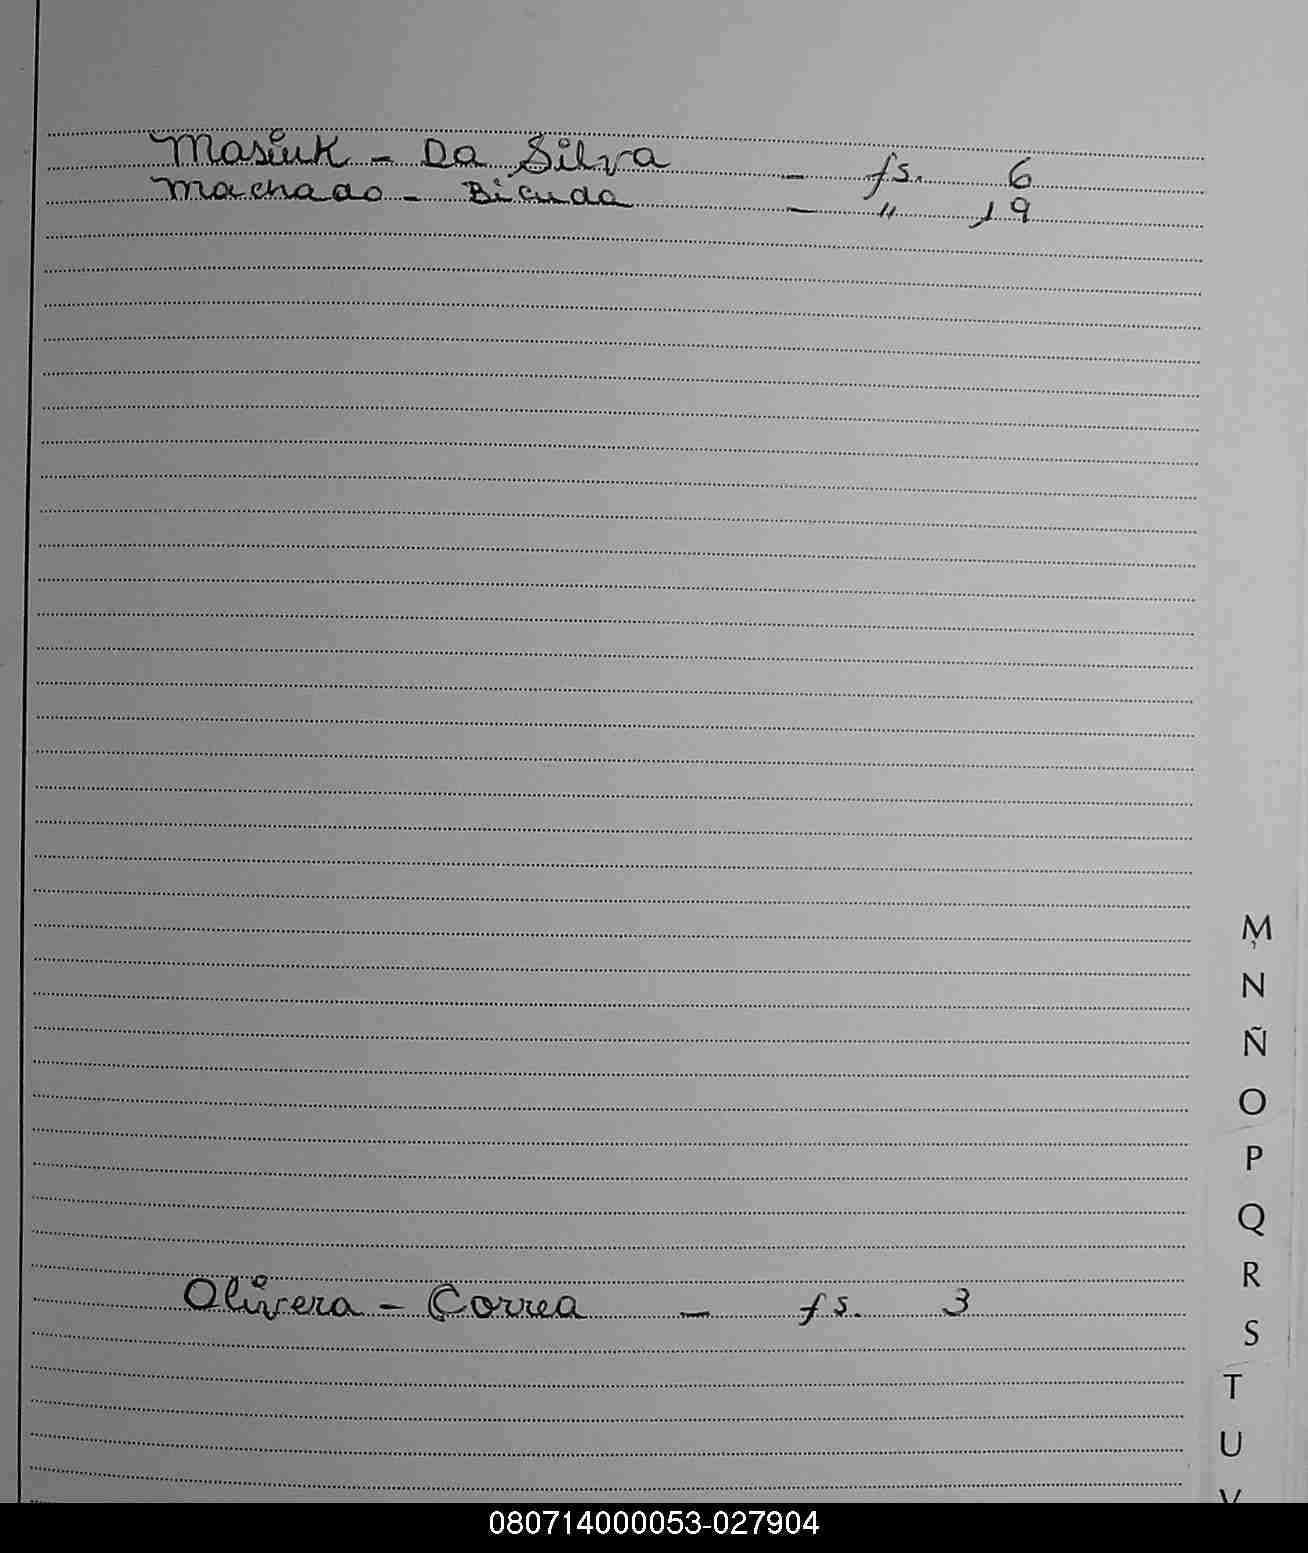 Masiuk - Da Silva - fs. 6
Machado - Bicudo - " 19
Olivera - Correa - fs. 3
M
N
Ñ
O
P
Q
R
S
T
U
V
080714000053-027904